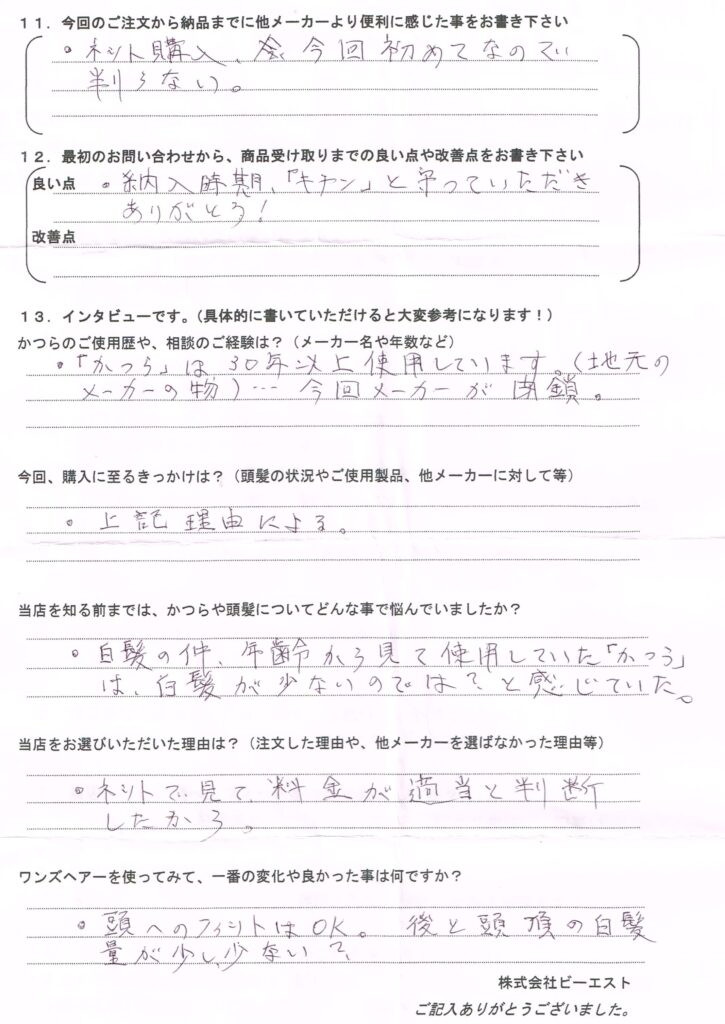 １１．今回のご注文から納品までに他メーカーより便利に感じた事をお書き下さい
・ネット購入、今回初めてなので
判らない。
１２．最初のお問い合わせから、商品受け取りまでの良い点や改善点をお書き下さい
良い点 ・納入時期、「キチン」と守っていただき
ありがとう！
改善点
１３．インタビューです。（具体的に書いていただけると大変参考になります！）
かつらのご使用歴や、相談のご経験は？（メーカー名や年数など）
・「かつら」は、30年以上使用しています。（地元の
メーカーの物）… 今回メーカーが閉鎖。
今回、購入に至るきっかけは？（頭髪の状況やご使用製品、他メーカーに対して等）
・上記理由による。
当店を知る前までは、かつらや頭髪についてどんな事で悩んでいましたか？
・白髪の件、年齢から見て使用していた「かつら」
は、白髪が少ないのでは？と感じていた。
当店をお選びいただいた理由は？（注文した理由や、他メーカーを選ばなかった理由等）
・ネットで見て、料金が適当と判断
したから。
ワンズヘアーを使ってみて、一番の変化や良かった事は何ですか？
・頭へのフィットはOK。 後と頭頂の白髪
量が少し少ない？
株式会社ビーエスト
ご記入ありがとうございました。